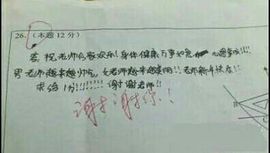 26. (本题12分)
答: 祝老师合家欢乐!身体健康万事如意
男老师越来越帅, 女老师越来越美丽!!老师新年快乐!
求给1分!!!!!! 谢谢老师!!
谢谢你!!